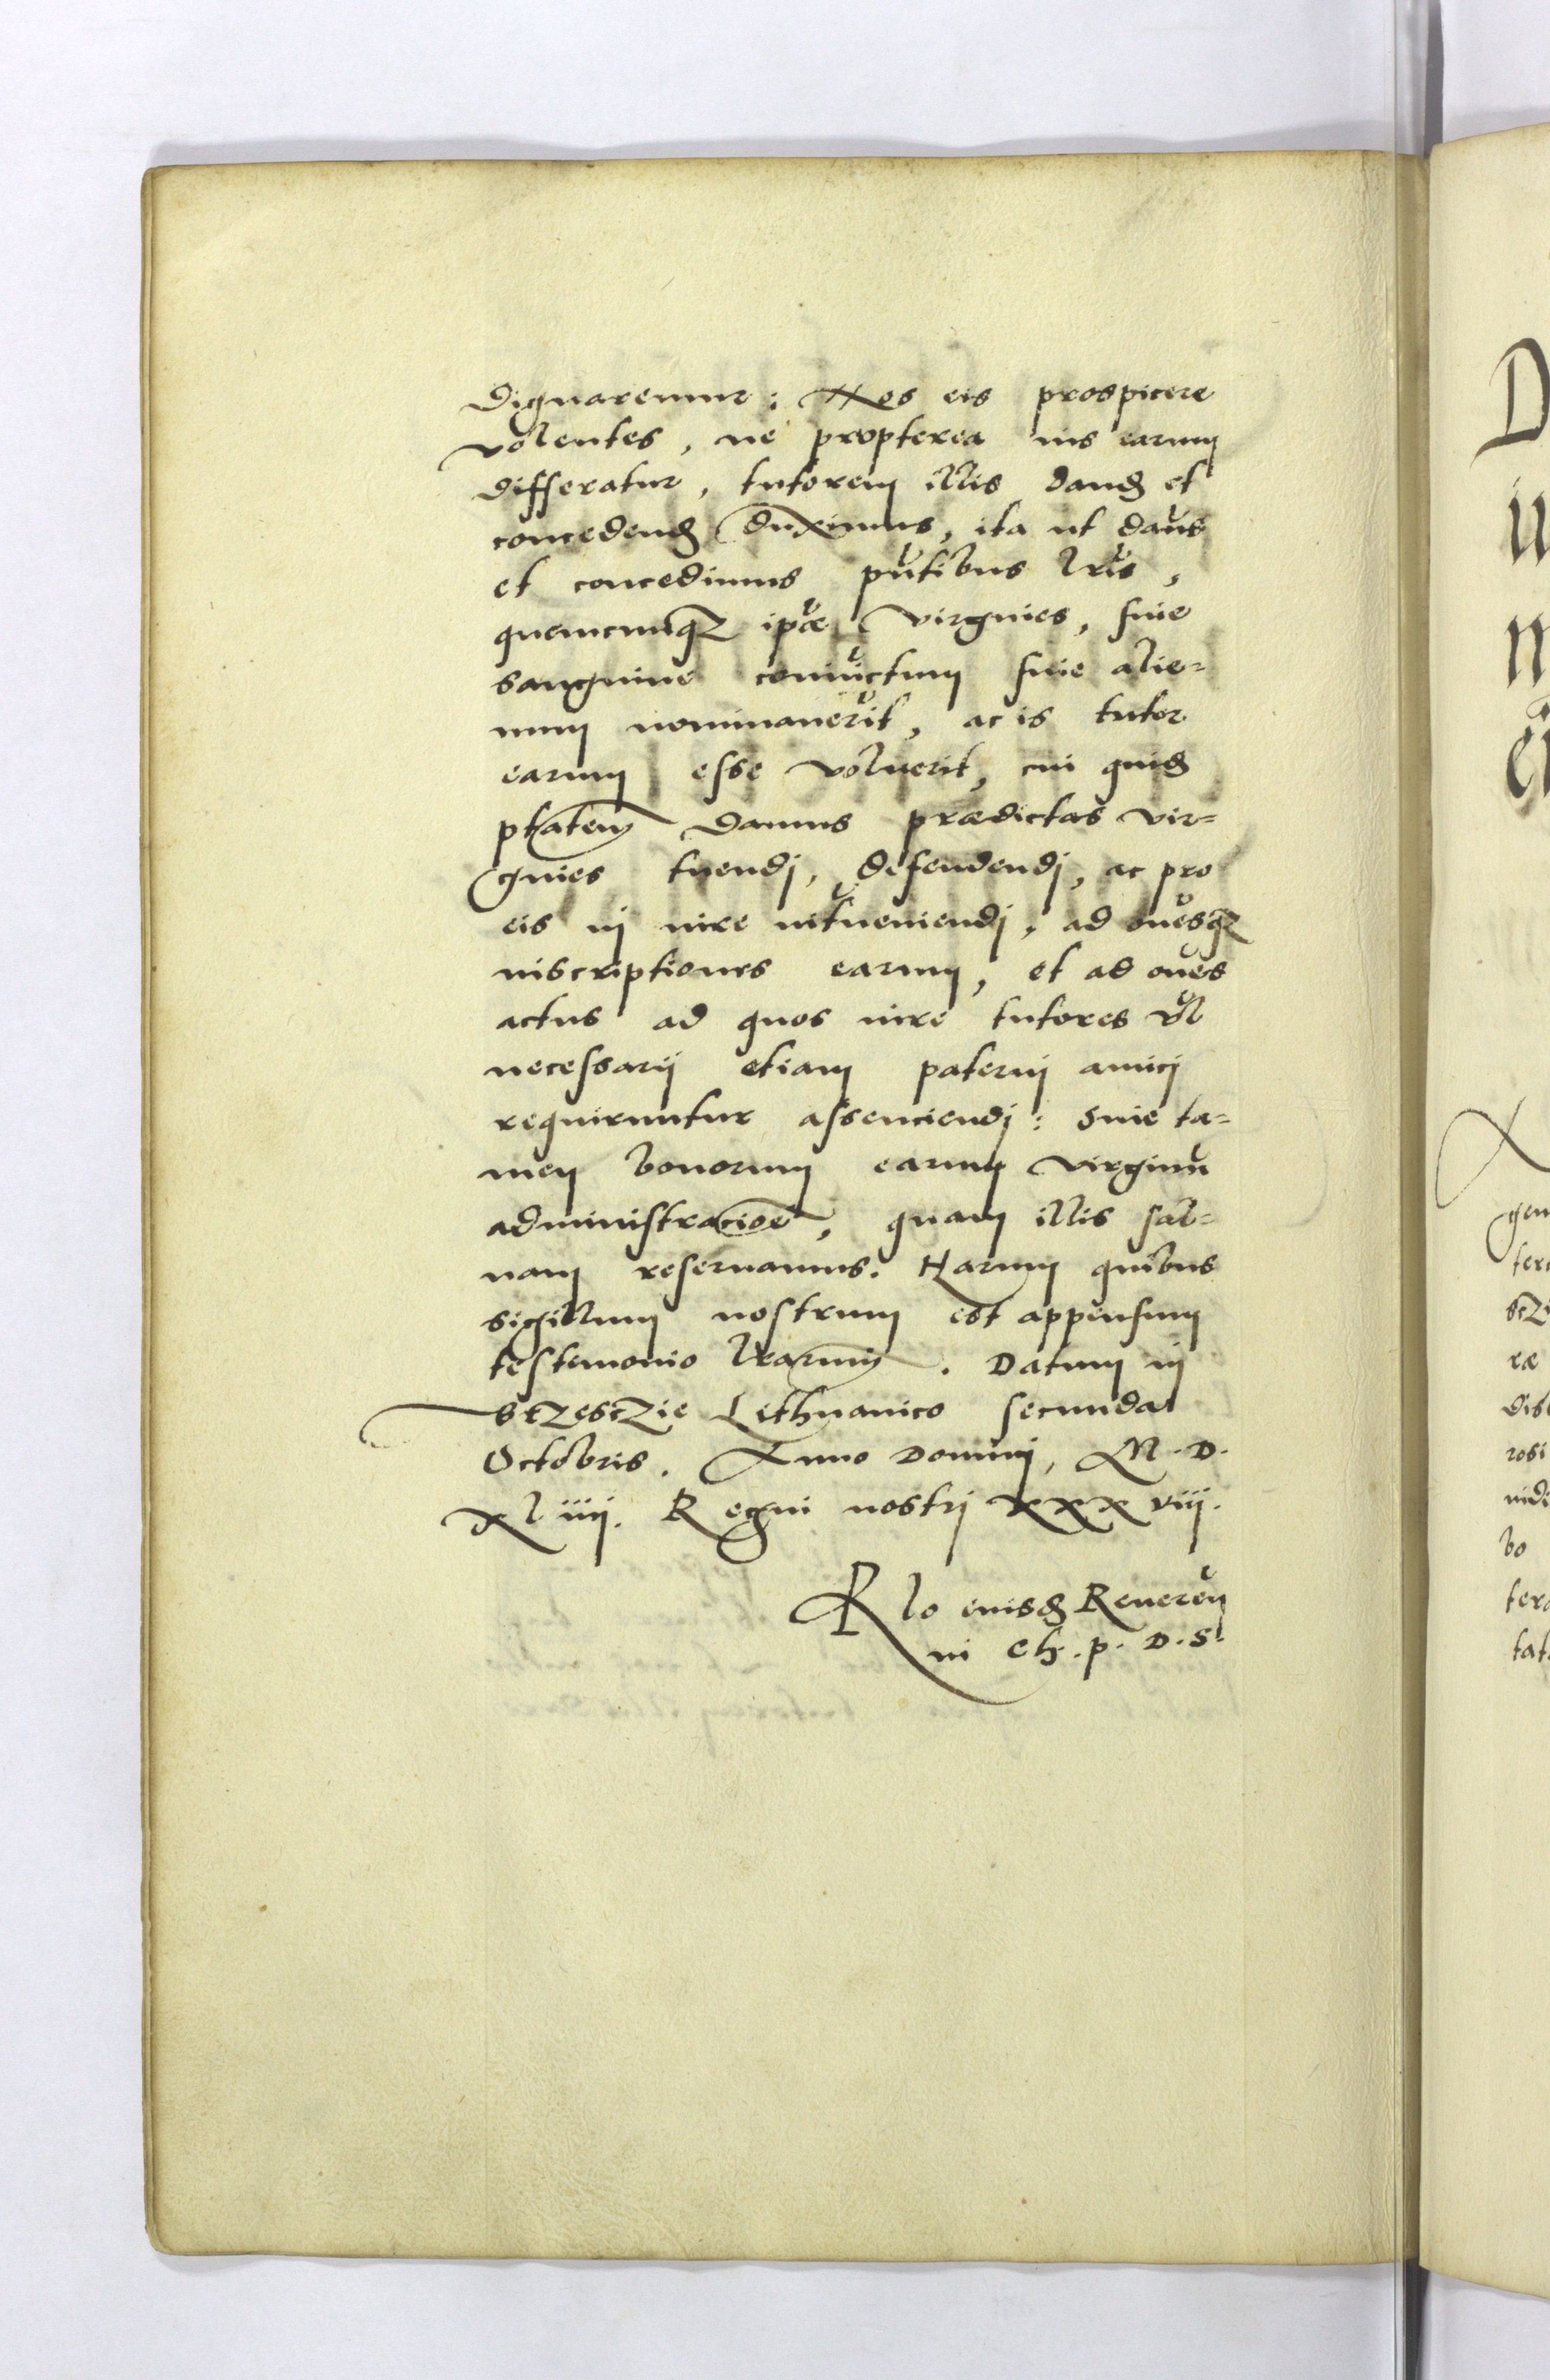 dignaremur: Nos eis prospicere
volentes, ne propterea ius earum
differatur, tutorem illis dand et
concedend duximus, ita ut dam̃s
et concedimus pñtibus lr̃is,
quemcunqz ipæ̃ virgines, siue
sanguine coniũctum siue alie=
num nominauer̃it, ac is tutor
earum esse voluerit, cui quid
ptatem damus prædictas vir=
gines tuendj, defendendj, ac pro
eis in iure int̃ueniendj, ad om̃esqz
inscriptiones earum, et ad om̃es
actus ad quos iure tutores vl̃
necessarij etiam paternj amicj
requiruntur assenciendj: Sine ta=
men bonorum earum virginũ
administracioẽ, quam illis sal=
uam reseruamus. Harum quibus
sigillum nostrum est appensum
testimonio lrarum. Datum in
Brzesczie Lithuanico secunda
Octobris. Anno Dominj, M. D.
XL iiij. Regni nostrj xxx viij.
Rlo eiusd Reuereñ
in Ch. p. D. S.